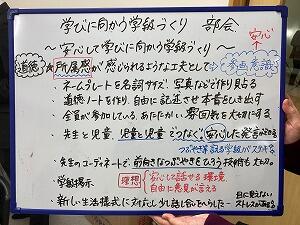 学びに向かう学級づくり 部会
安心
～安心して学びに向かう学級づくり～
道徳 所属感が感じられるような工夫として ⇨ 参画意識
・ネームプレートを名詞サイズ、写真などで作り貼る
・道徳ノートを作り、自由に記述させ本音をひき出す
・全員が参加している、あたたかい雰囲気を大切にする
・先生と児童、児童と児童 どうつなぐ、安心した発言が出る
つぶやき等言える学級がステキ
・先生のコーディネートで、前向きなつぶやきをひろう技術も大切。
・学級掲示
理想
安心して話せる環境
自由に意見が言える
・新しい生活様式に対応し 少し話し合いをへらした
目に見えない
ストレスがある